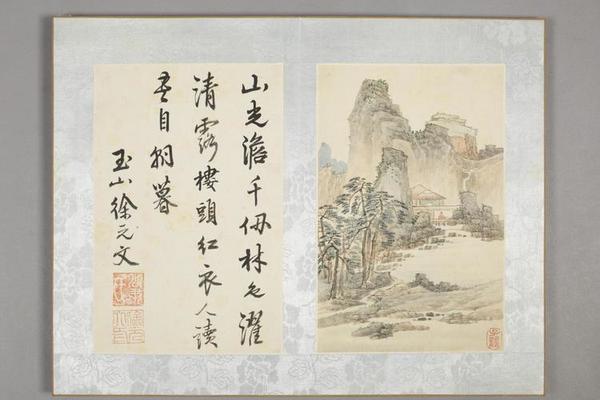 山光澹千仞林色濯
清露樓頭紅衣人讀
書自朝暮
玉山徐元文